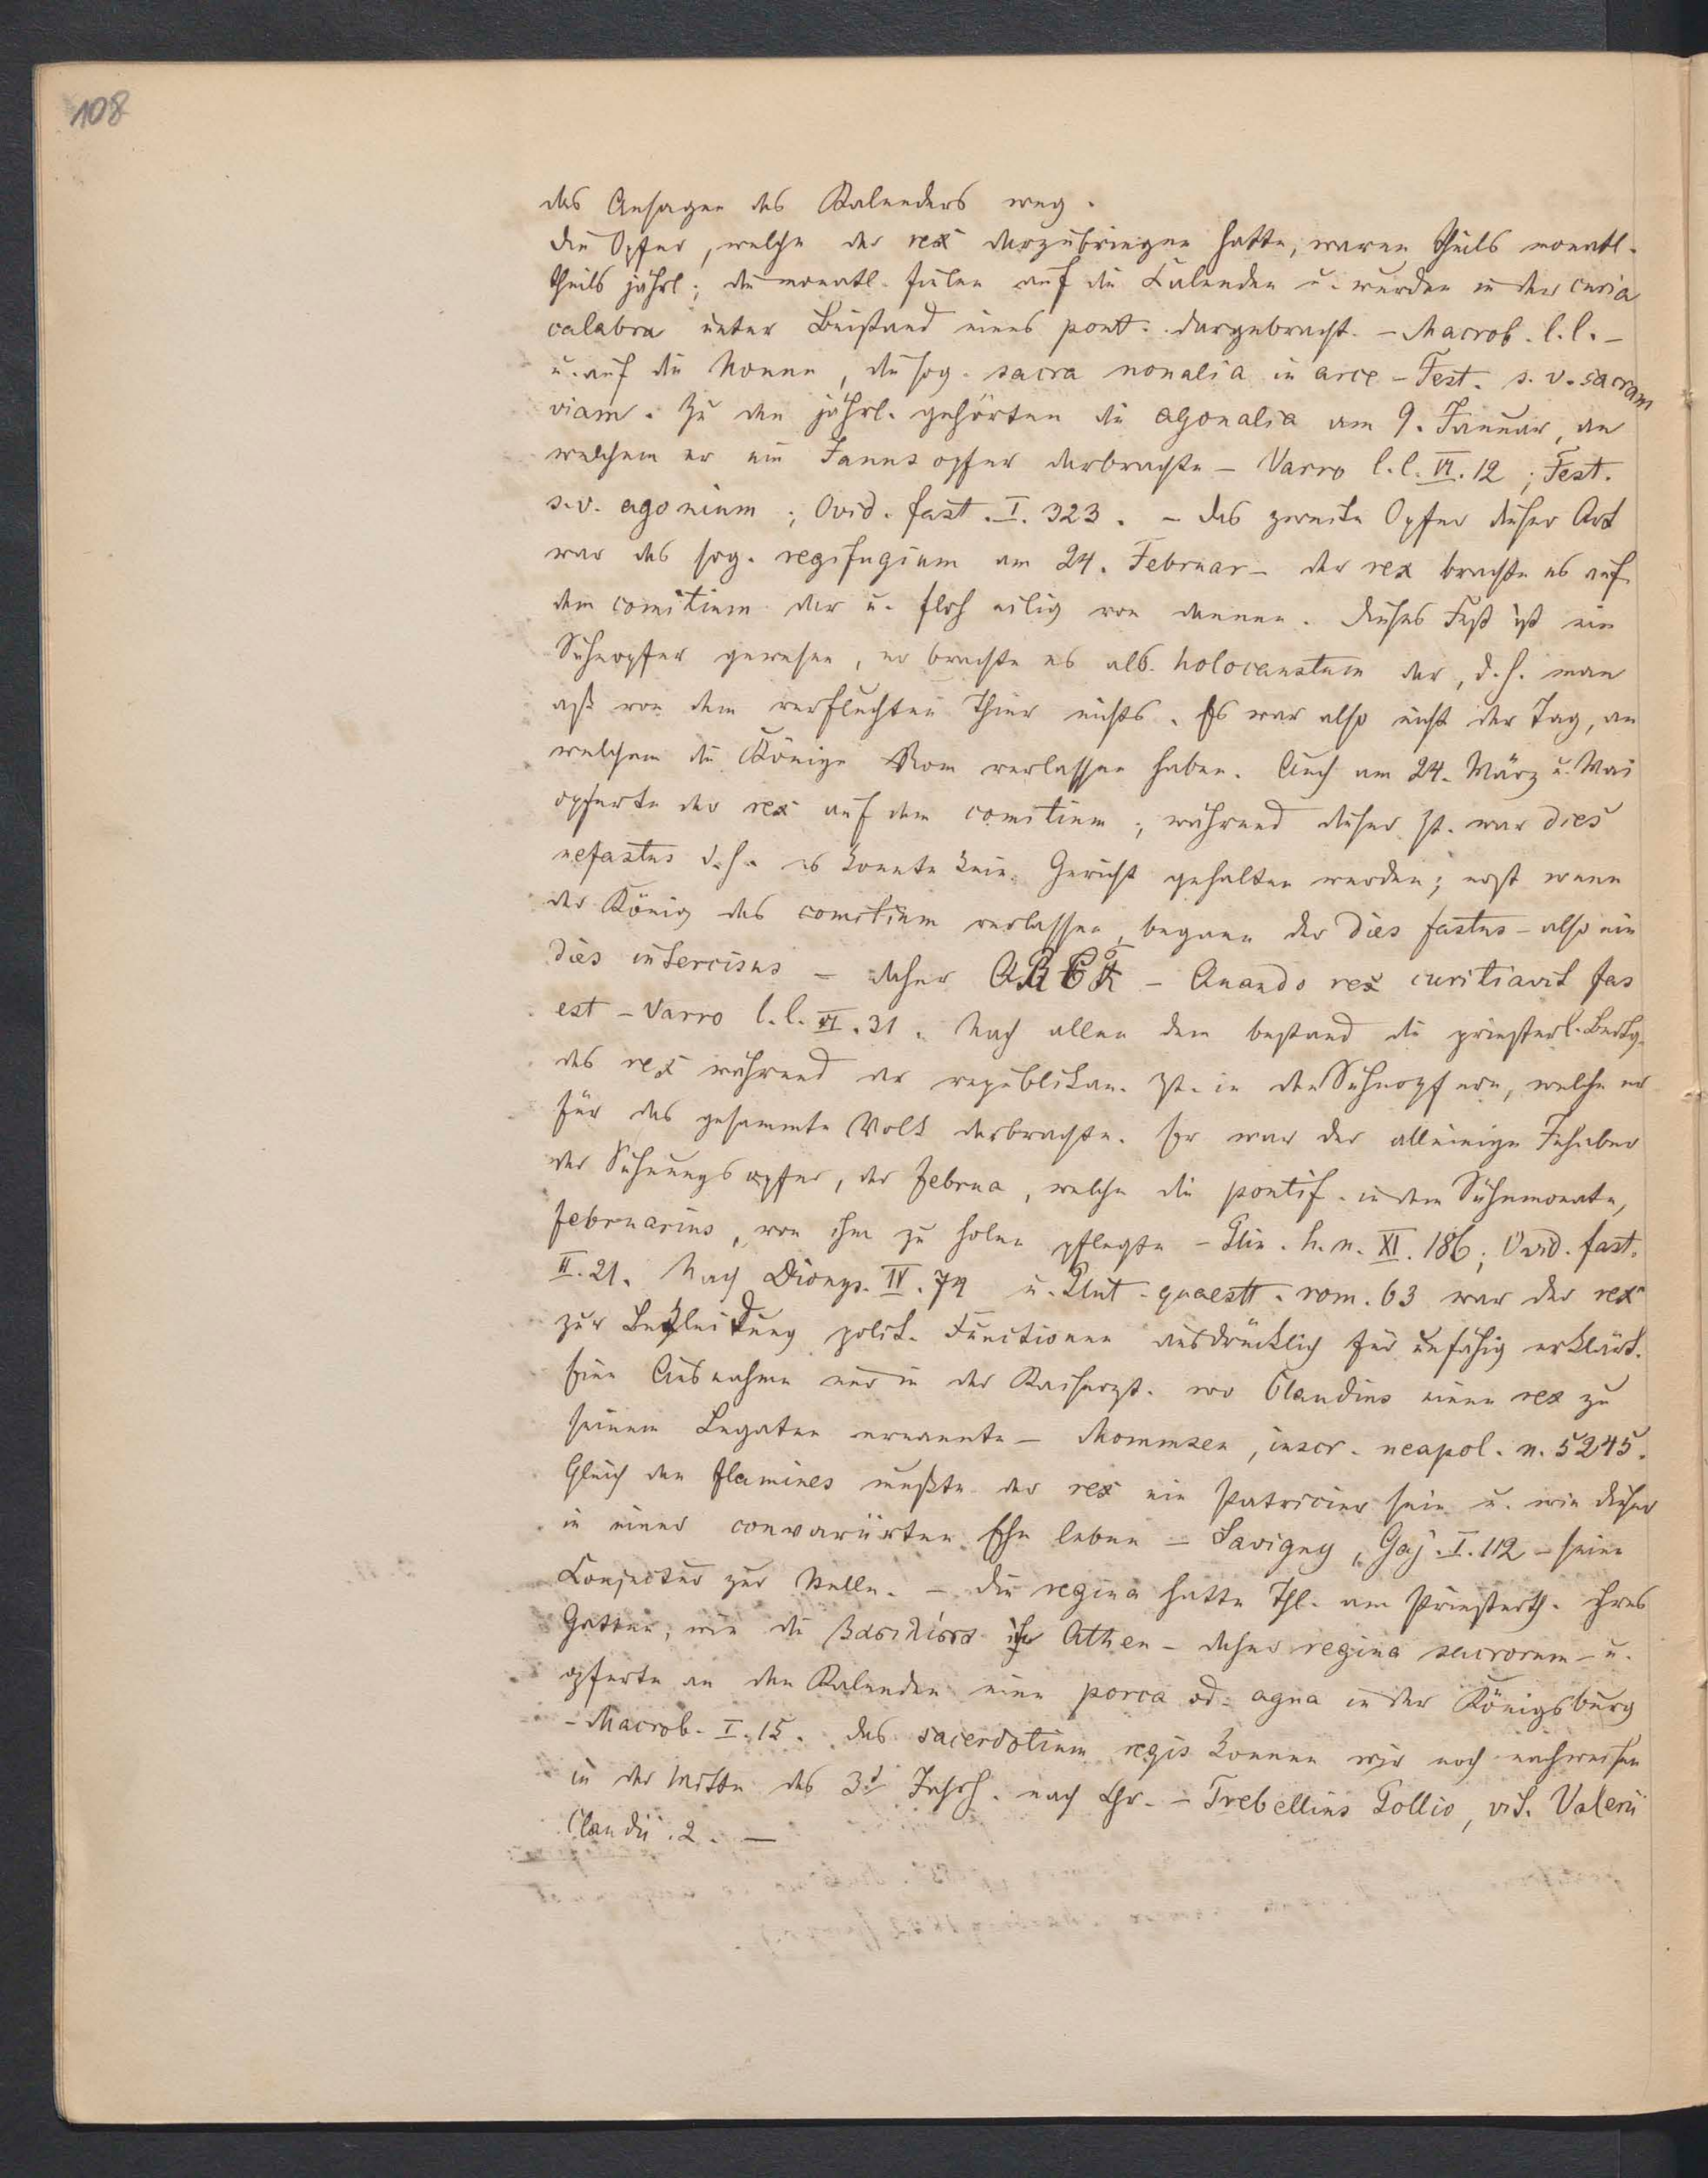 108
das Ansagen des Kalenders weg.
Die Opfer, welche der rex darzubringen hatte, waren theils monatl.
theils jährl.; die monatl. fielen auf die Calenden u. wurden in der curia
calabra unter Beistand eines pont. dargebracht. – Macrob. l.l. –
u. auf die Nonen, die sog. sacra nonalia in arce – Fest. s. v. sacram
viam. Zu den jährl. gehörten die agonalia am 9. Januar, an
welchem er ein Janusopfer darbrachte – Varro l.l. VI. 12; Fest.
s.v. agonium; Ovid. fast. I. 323. – Das zweite Opfer dieser Art
war das sog. regifugium am 24. Februar – der rex brachte es auf
dem comitium dar u. floh eilig von dannen. Dieses Fest ist ein
Sühnopfer gewesen, er brachte es als holocaustum dar, d.h. man
aß von dem verfluchten Thier nichts. Es war also nicht der Tag, an
welchem die Könige Rom verlassen haben. Auch am 24. März u. Mai
opferte der rex auf dem comitium; während dieser Zt. war dies
nefastus d.h. es konnte kein Gericht gehalten werden; erst wenn
der König das comitium verlassen, begann der dies fastus – also ein
dies intercisus – daher QRCF – Quando rex comitiavit fas
est – Varro l.l. VI. 31. Nach allen dem bestand die priesterl.
des rex während der republikan. Zt. in den Sühnopfern, welche er
für das gesammte Volk darbrachte. Er war der alleinige Inhaber
der Sühnungsopfer, der februa, welche die pontif. in dem Sühnmonate,
februarius, von ihm zu holen pflegte – Plin. h. n. XI. 186; Ovid. fast.
II. 21. Nach Dionys. IV. 74 u. Plut. quaestt. rom. 63 war der rex
zur Bekleidung polit. Functionen ausdrücklich für unfähig erklärt.
Eine Ausnahme nur in der Kaiserzt. wo Claudius einen rex zu
seinem Legaten ernannte – Mommsen, inscr. neapol. n. 5245.
Gleich den flamines mußte der rex ein Patricier sein u. wie dieser
in einer confarrirten Ehe leben – Savigny, Gaj. I. 112 – seine
Conjectur zur Stelle. – Die regina hatte Thl. am Priesterth. ihres
Gatten, wie die βασίλισσα in Athen – daher regina sacrorum – u.
opferte an den Kalenden eine porca od. agna in der Königsburg
– Macrob. I. 15. Das sacerdotium regis konnen wir noch nachweisen
in der Mitte des 3t Jahrh. nach Chr. – Trebellius Pollio, vit. Valerii
Claudii. 2. –